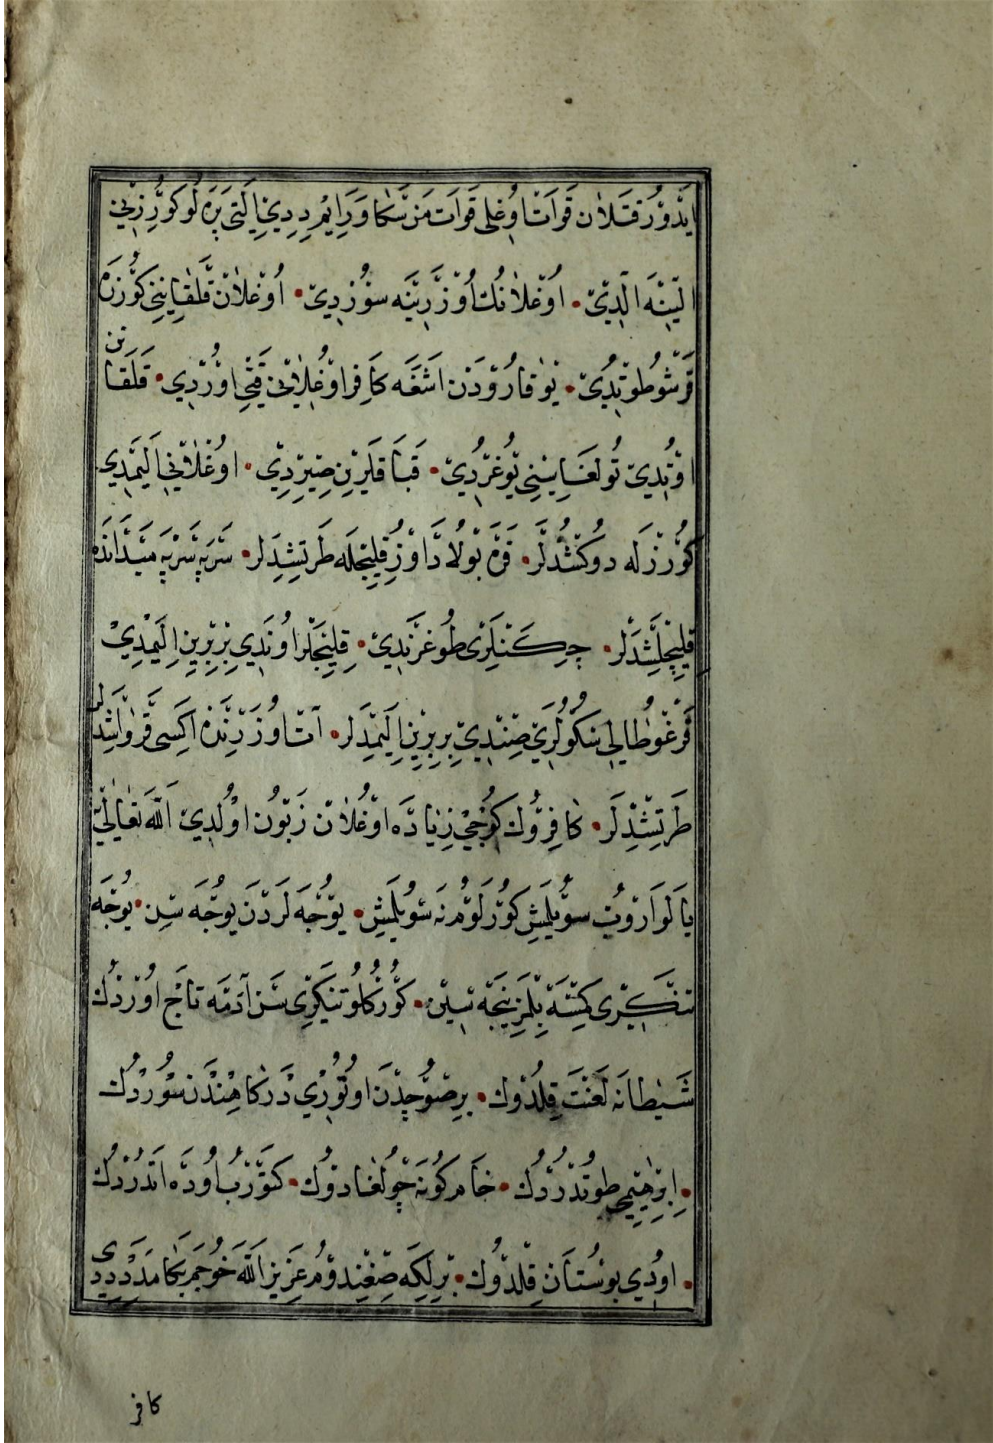 ايدور قلان قوات اوغلی قوات من سكا وراير ديدی التی پره لو كورزین
الینه الدی • اوغلانك اوزرینه سوردی • اوغلان قلقانینی كورزه
قرشو طوتدی • یوقارودن اشغه كافر اوغلانی قتی اوردی • قلقانن
اوتدی تولغاسینی یوغردی • قباقلرین صیردی • اوغلانی الیمدی
كورزله دوكشدلر • قره بولاد اوز قلیجله طرتشدلر • سرپه سرپه میدانده
قلیجلشدلر • چكنلری طوغرندی • قلیجلر اوندی بربرین الیمدی
قرغو طالی سنكولری صندی بربرین الیمدلر • آت اوزرنده اكسی قرواشدلر
طرتشدلر • كافروك كوجی زیاده اوغلان زبون اولدی الله تعالی
یالواروب سویلمش كورلوم نه سویلمش • یوجه لردن یوجه سن • یوجه
تنكری كمسه بلمز نیجه سین • كوركلو تنكری سن آدمه تاج اوردك
شیطانه لعنت قلدوك • بر صوجدن اوتوری دركاهندن سوردك
• ابرهیمی طوتدردك • خام كونه چولغادوك • كتورب اوده اتدردك
• اودی بوستان قلدوك • برلكه صغندوم عزیز الله خوجم بكا مدد دیدی
كافر